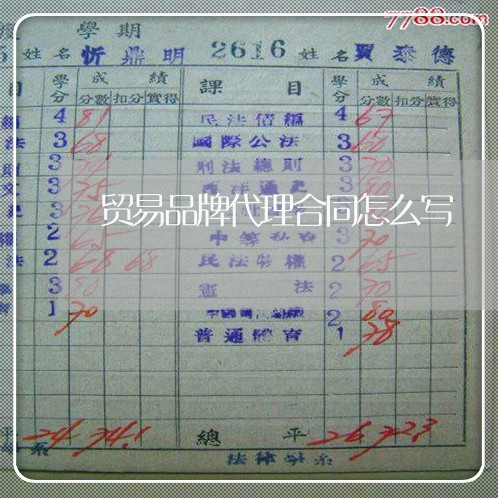 7788.com
學期
5 姓名 忻鼎明 2616 姓名 賈泰德
目 學分 成績 課目 學分 成績
分數 扣分 實得 分數 扣分 實得
4 81 民法債編 4 67
法 3 68 國際公法 3 60
3 刑法總則 3 70
3 75 西洋通史 3 80
貿易品牌代理合同怎么写
2 65 3 70
法 2 68 68 民法物權 2 65
3 80 憲法 2 70
育 1 70 2 80
普通體育 1 78
平 24 74.1 總平 26 72.3
系 法律學系